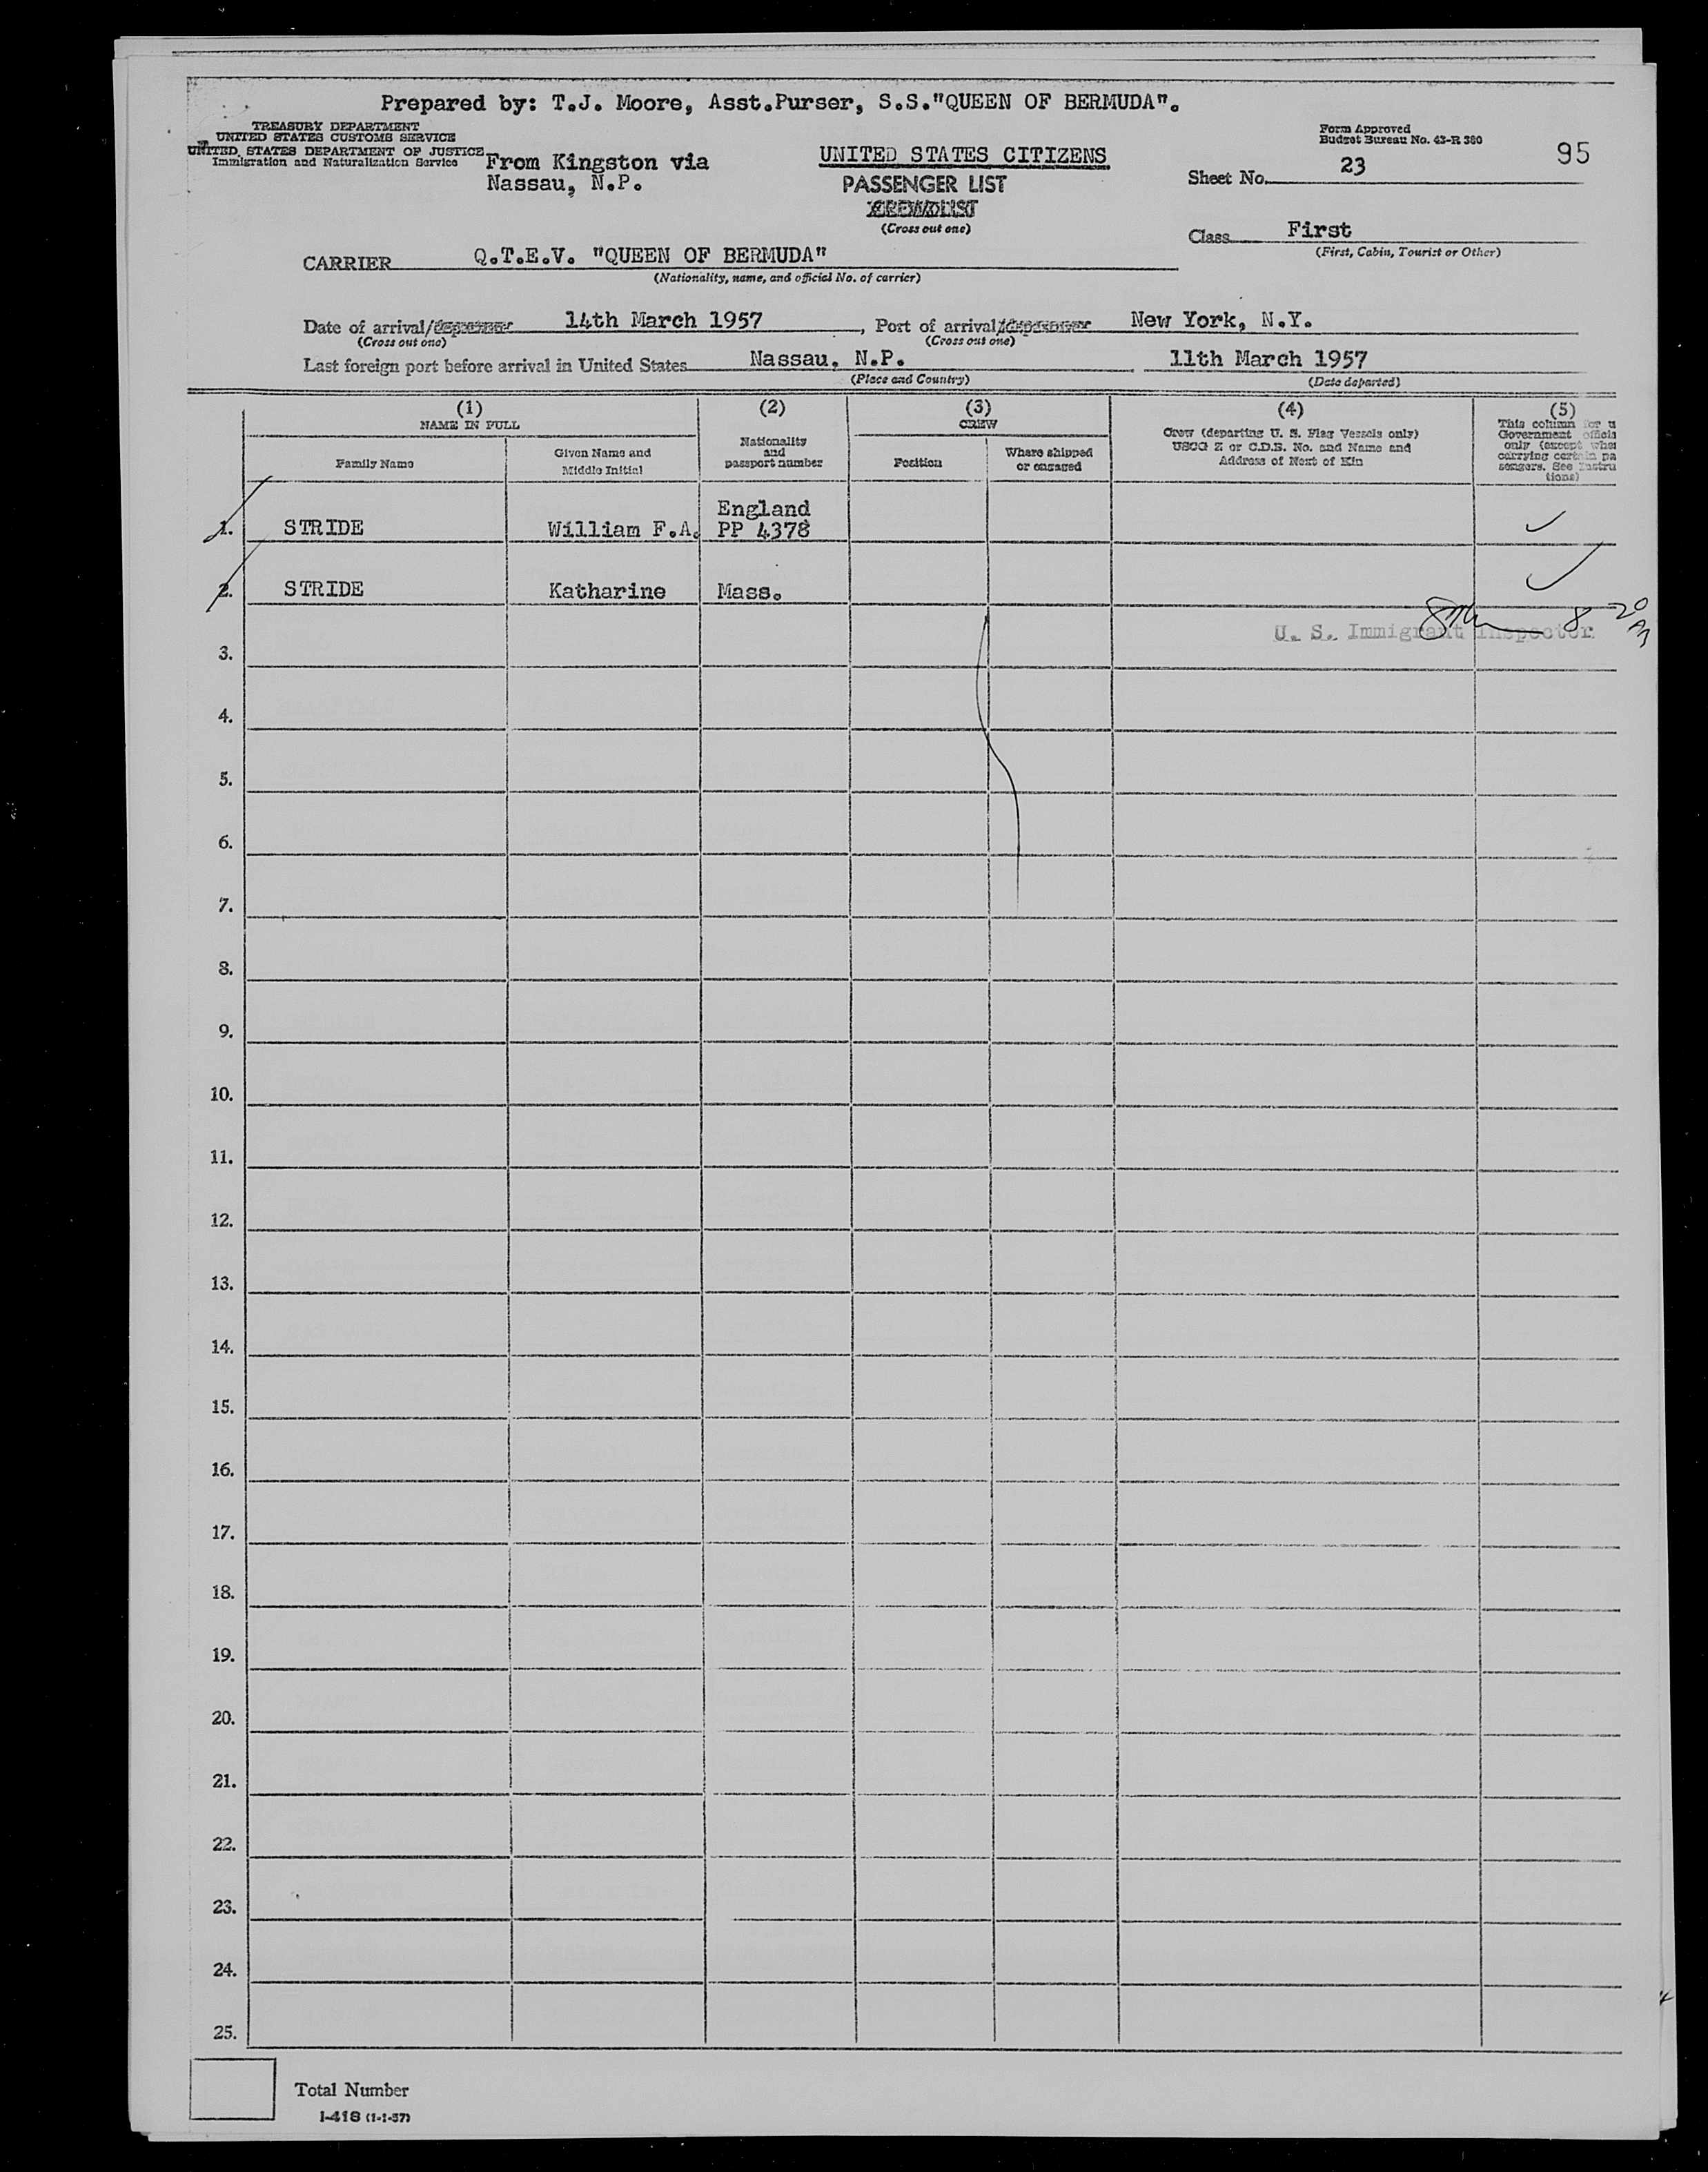 Prepared by: T.J. Moore, Asst.Purser, S.S."QUEEN OF BERMUDA".
TREASURY DEPARTMENT
UNITED STATES CUSTOMS SERVICE
UNITED STATES DEPARTMENT OF JUSTICE
Immigration and Naturalization Service
From Kingston via
Nassau, N.P.
UNITED STATES CITIZENS
PASSENGER LIST
CREW LIST
(Cross out one)
Form Approved
Budget Bureau No. 43-R 380
95
Sheet No. 23
Class First
(First, Cabin, Tourist or Other)
CARRIER Q.T.E.V. "QUEEN OF BERMUDA"
(Nationality, name, and official No. of carrier)
Date of arrival/departure 14th March 1957, Port of arrival/departure New York, N.Y.
(Cross out one) (Cross out one)
Last foreign port before arrival in United States Nassau, N.P. 11th March 1957
(Place and Country) (Date departed)
(1) (2) (3) (4) (5)
NAME IN FULL
Family Name
Given Name and
Middle Initial
Nationality
and
passport number
CREW
Position
Where shipped
or engaged
Crew (departing U. S. Flag Vessels only)
USCG Z or C.D.B. No. and Name and
Address of Next of Kin
This column for u
Government officia
only (except whe
carrying certain pa
sengers. See Instru
tions)
England
1. STRIDE William F.A. PP 4378
2. STRIDE Katharine Mass.
8 20 AM
U. S. Immigrant Inspector
3.
4.
5.
6.
7.
8.
9.
10.
11.
12.
13.
14.
15.
16.
17.
18.
19.
20.
21.
22.
23.
24.
25.
Total Number
I-418 (1-1-57)